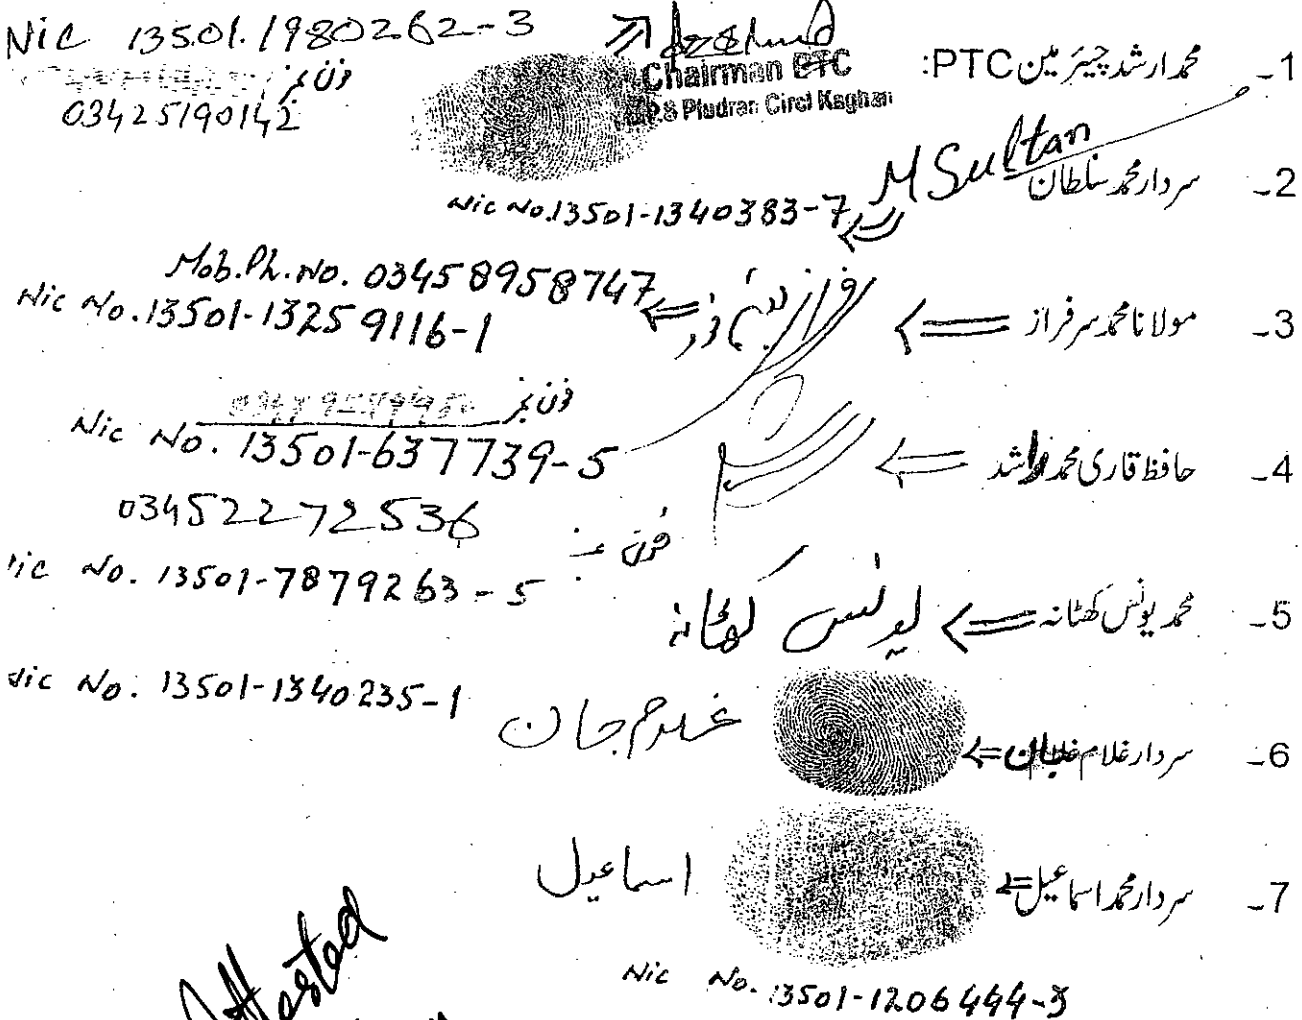 1۔ محمد ارشد چیئرمین PTC:
Chairman PTC
Pludran Circl Kaghan
NiC 13501.1980262-3
فون نمبر
03425190142
2۔ سردار محمد سلطان
M Sultan
Nic No.13501-1340383-7
3۔ مولانا محمد سرفراز
Mob.Ph.No. 03458958747
Nic No.13501-13259116-1
فون نمبر
4۔ حافظ قاری محمد راشد
Nic No. 13501-637739-5
03452272536
فون
5۔ محمد یونس کھٹانہ
یونس کھٹانہ
Nic No. 13501-7879263-5
6۔ سردار غلام جان
غلام جان
Nic No. 13501-1340235-1
7۔ سردار محمد اسماعیل
اسماعیل
Nic No. 13501-1206444-3
Attested